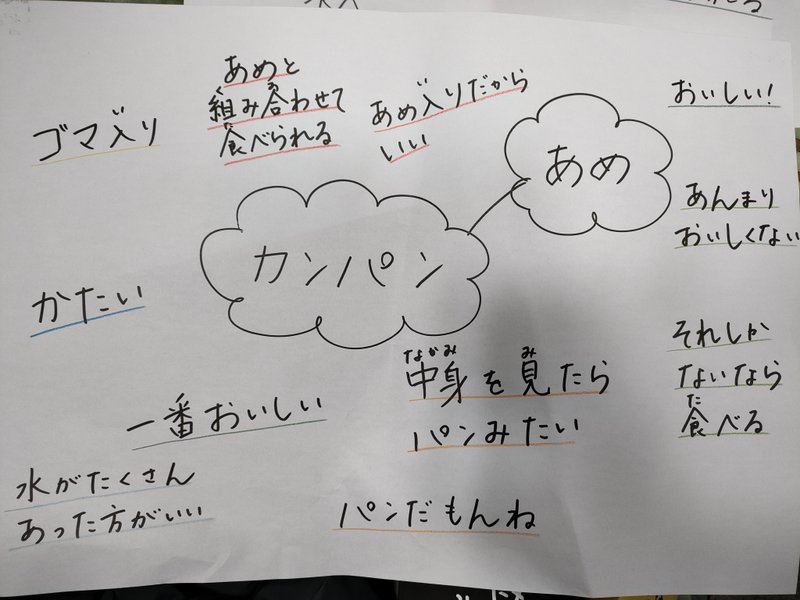 あめと
組み合わせて
食べられる
あめ入りだから
いい
おいしい!
ゴマ入り
あめ
あんまり
おいしくない
カンパン
かたい
それしか
ないなら
食べる
た
中身を見たら
なかみ み
パンみたい
一番おいしい
水がたくさん
あった方がいい
パンだもんね